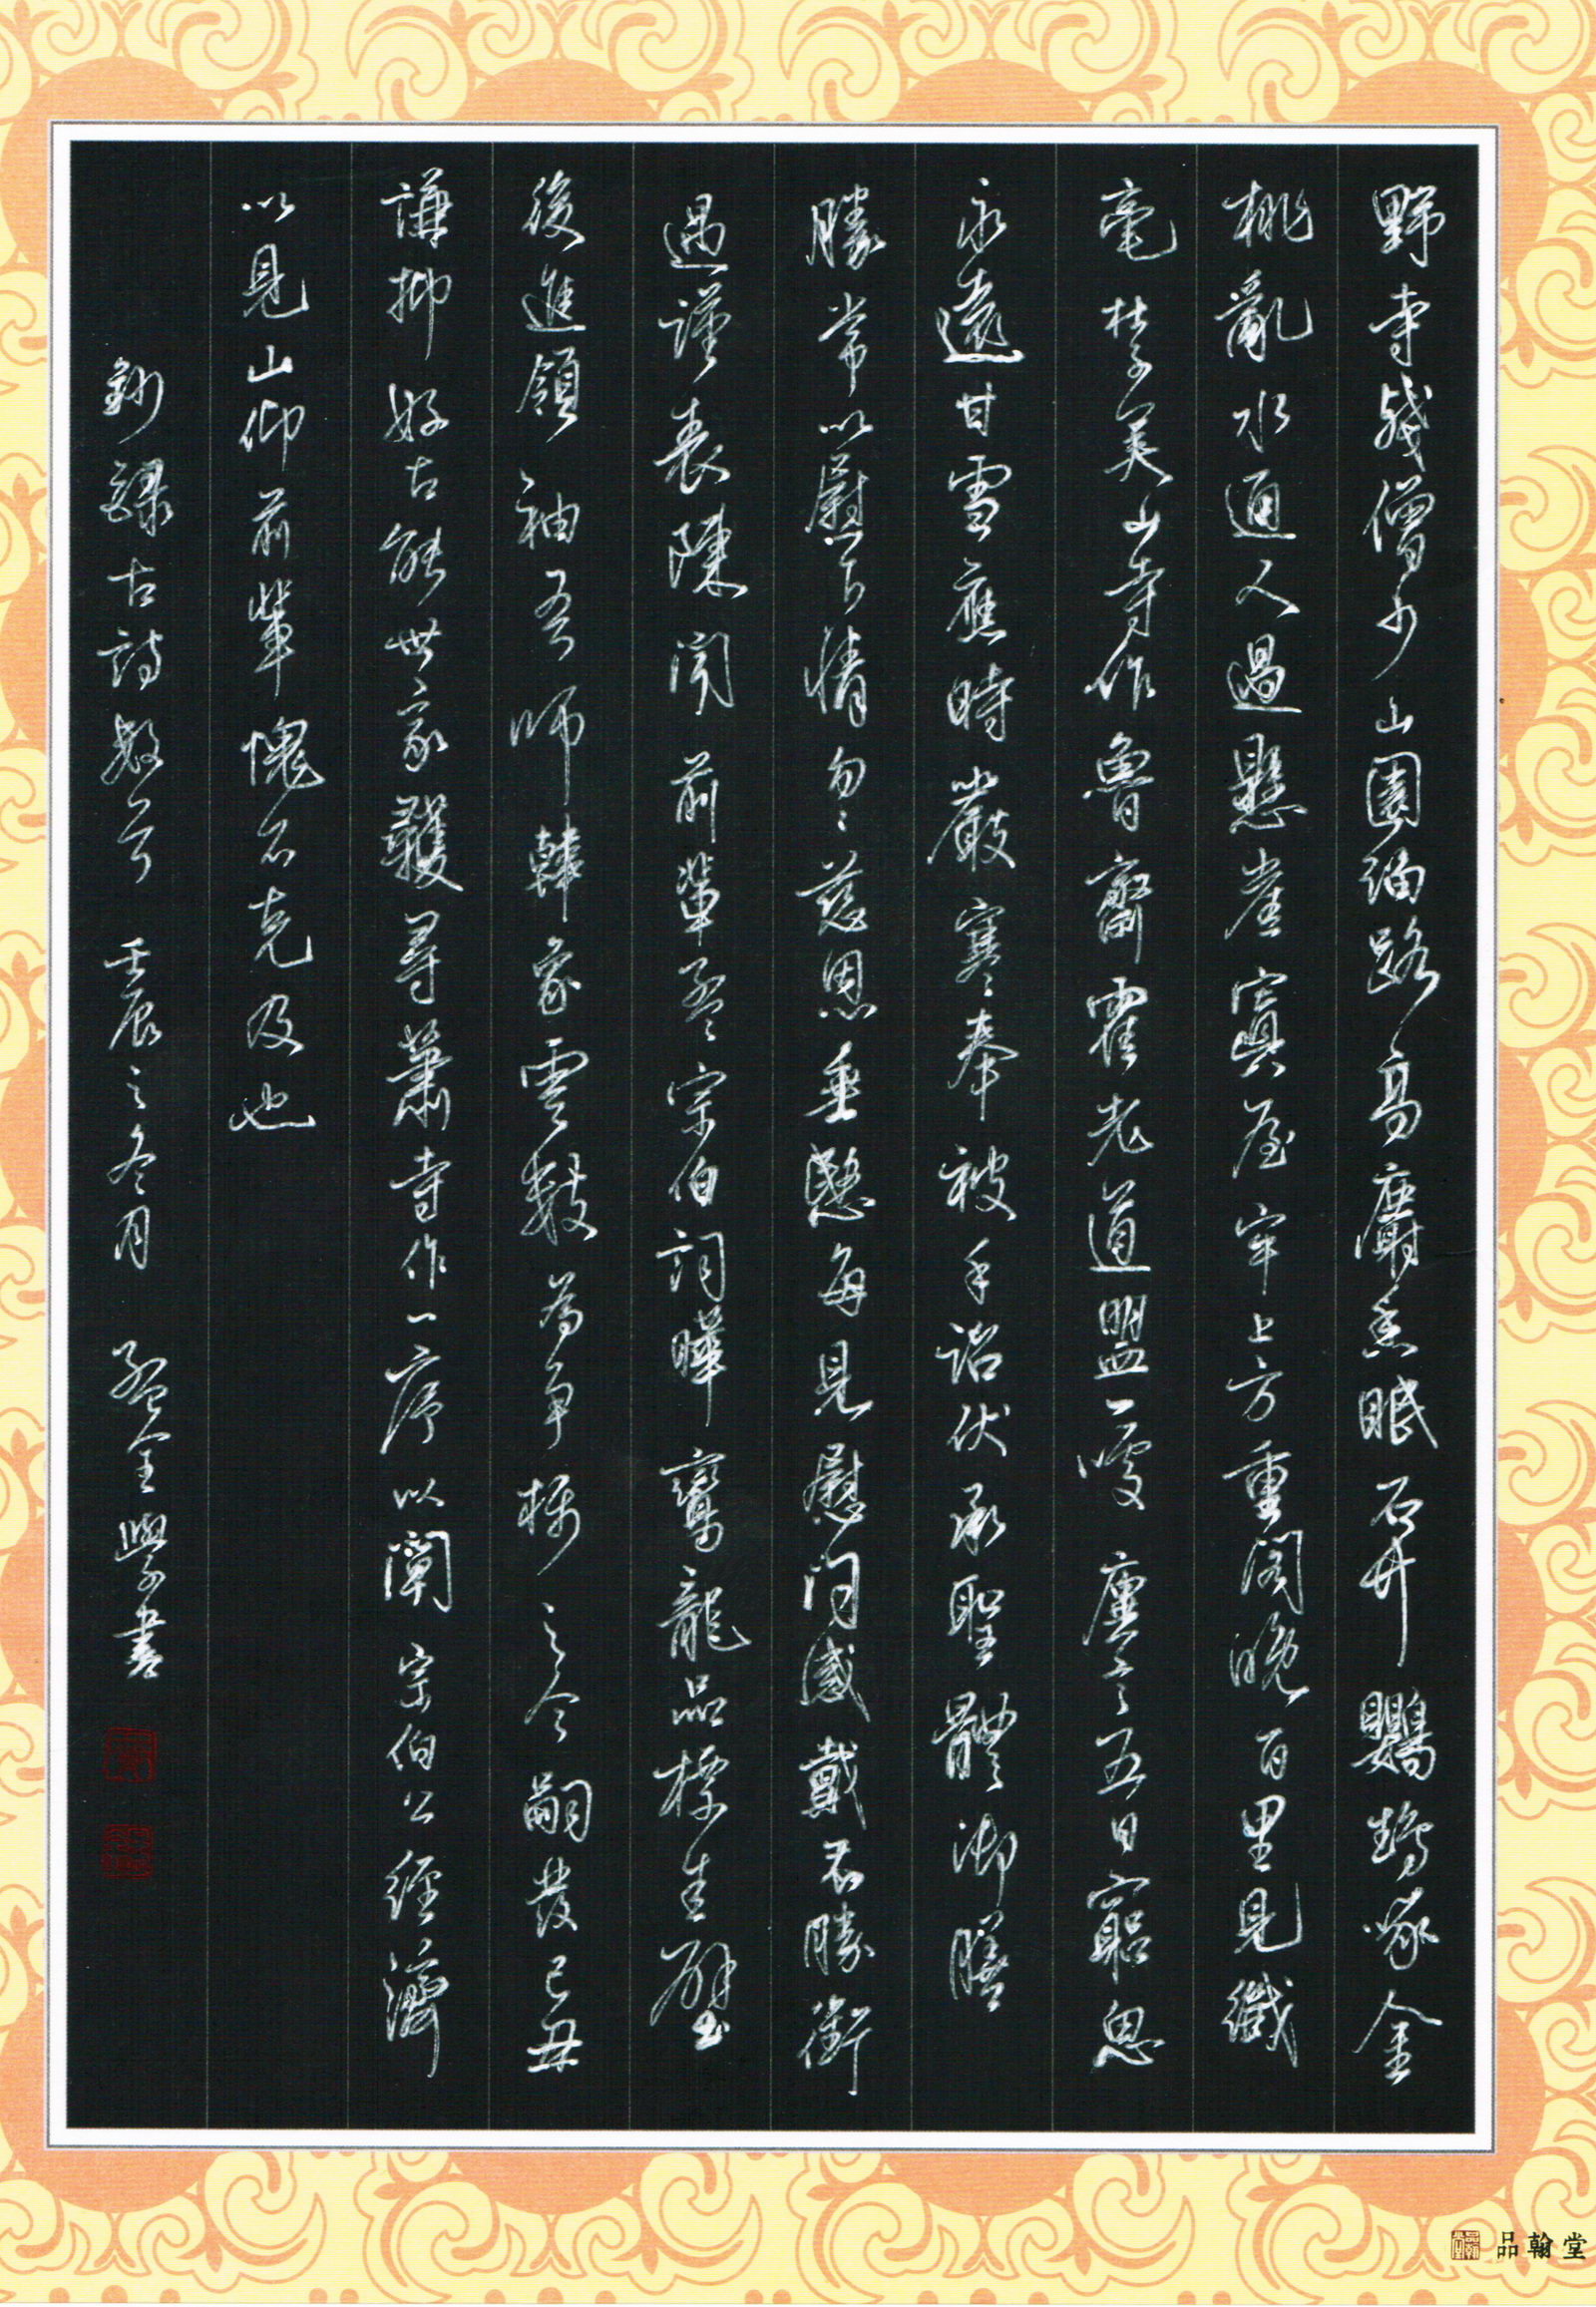 野寺殘僧少山園細路高麝香眠石竹鸚鵡啄金
桃亂水通人過懸崖寘屋牢上方重閣晚百里見纖
毫杜子美山寺作魯齋霍老道盟一嘆塵言五日窮思
永遠甘雪應時嚴寒奉被手詔伏承聖體御膳
勝常以慰下情勿勿慈恩垂愍每見慰問感戴不勝銜
遇謹表陳聞前輩孟宗伯詞曄鸞龍品標生璧
後進領袖吾師韓家雲數為爭構之今嗣發己丑
謙抑好古能世家聲尋蕭寺作一序以闡宗伯公經濟
以見山仰前輩愧不克及也
鈔錄古詩數首 壬辰之冬月 孟金學書
品翰堂